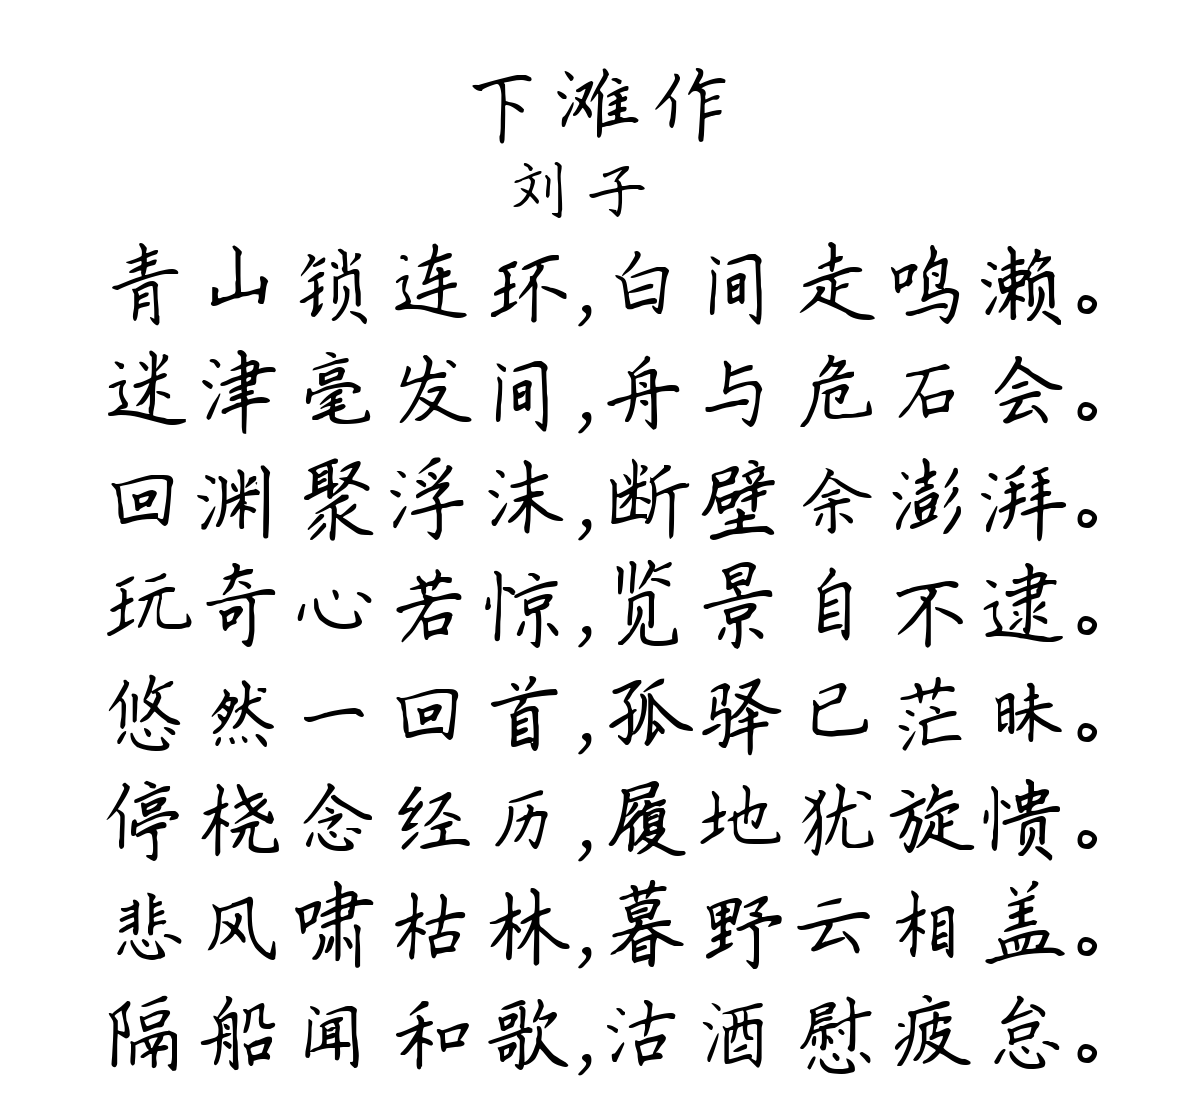 下滩作
刘子
青山锁连环,白间走鸣濑。
迷津毫发间,舟与危石会。
回渊聚浮沫,断壁余澎湃。
玩奇心若惊,览景自不逮。
悠然一回首,孤驿已茫昧。
停桡念经历,履地犹旋愦。
悲风啸枯林,暮野云相盖。
隔船闻和歌,沽酒慰疲怠。